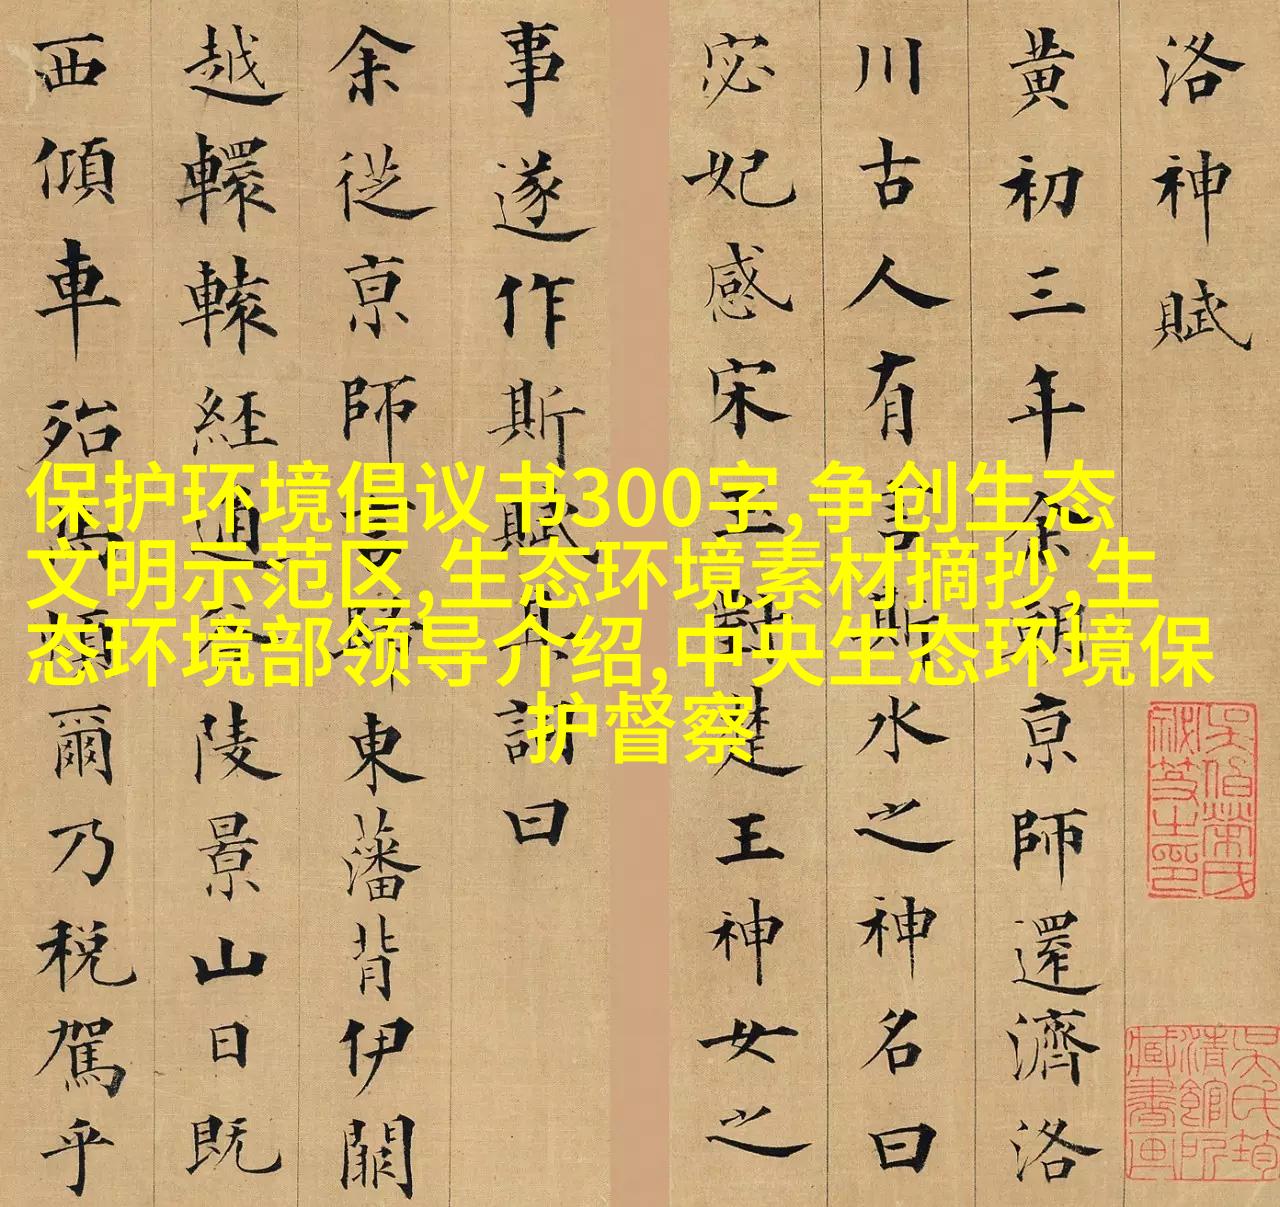 洛神賦
黄初三年余朝京師還濟洛
川古人有言斯水之神名曰
宓妃感宋玉對楚王神女之
事遂作斯賦其詞曰
余從京師言歸東藩背伊闕
越轘轅經通谷陵景山日既
西傾車殆馬煩爾乃稅駕乎
保护环境倡议书300字,争创生态
文明示范区,生态环境素材摘抄,生
态环境部领导介绍,中央生态环境保
护督察